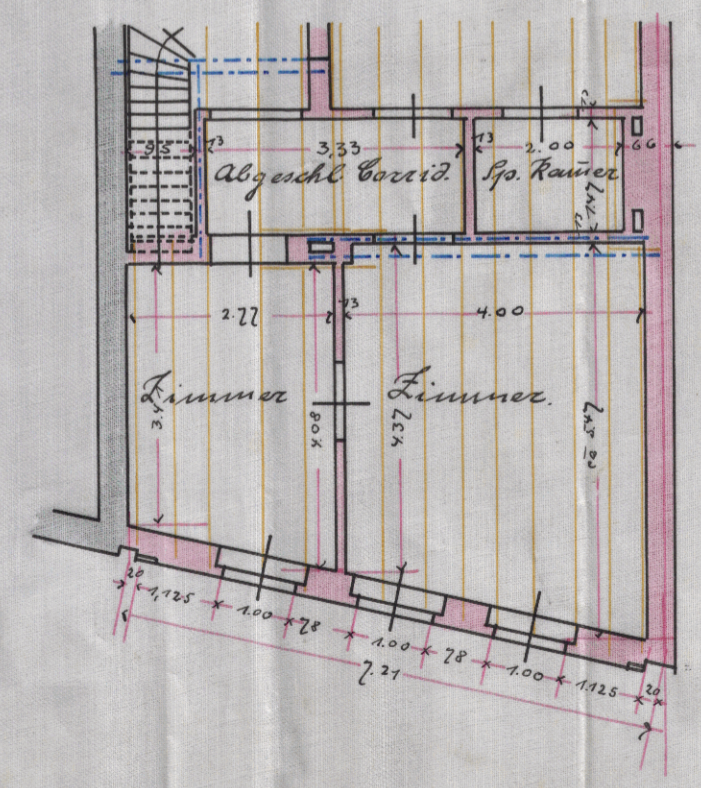 95
13
3,33
13
2.00
66
Abgeschl. Corrid.
Sp. Kam̅er
2.77
13
4.00
Zimmer
Zimmer.
4.08
4.37
20
1,125
1.00
78
1.00
78
1.00
1.125
20
7.21